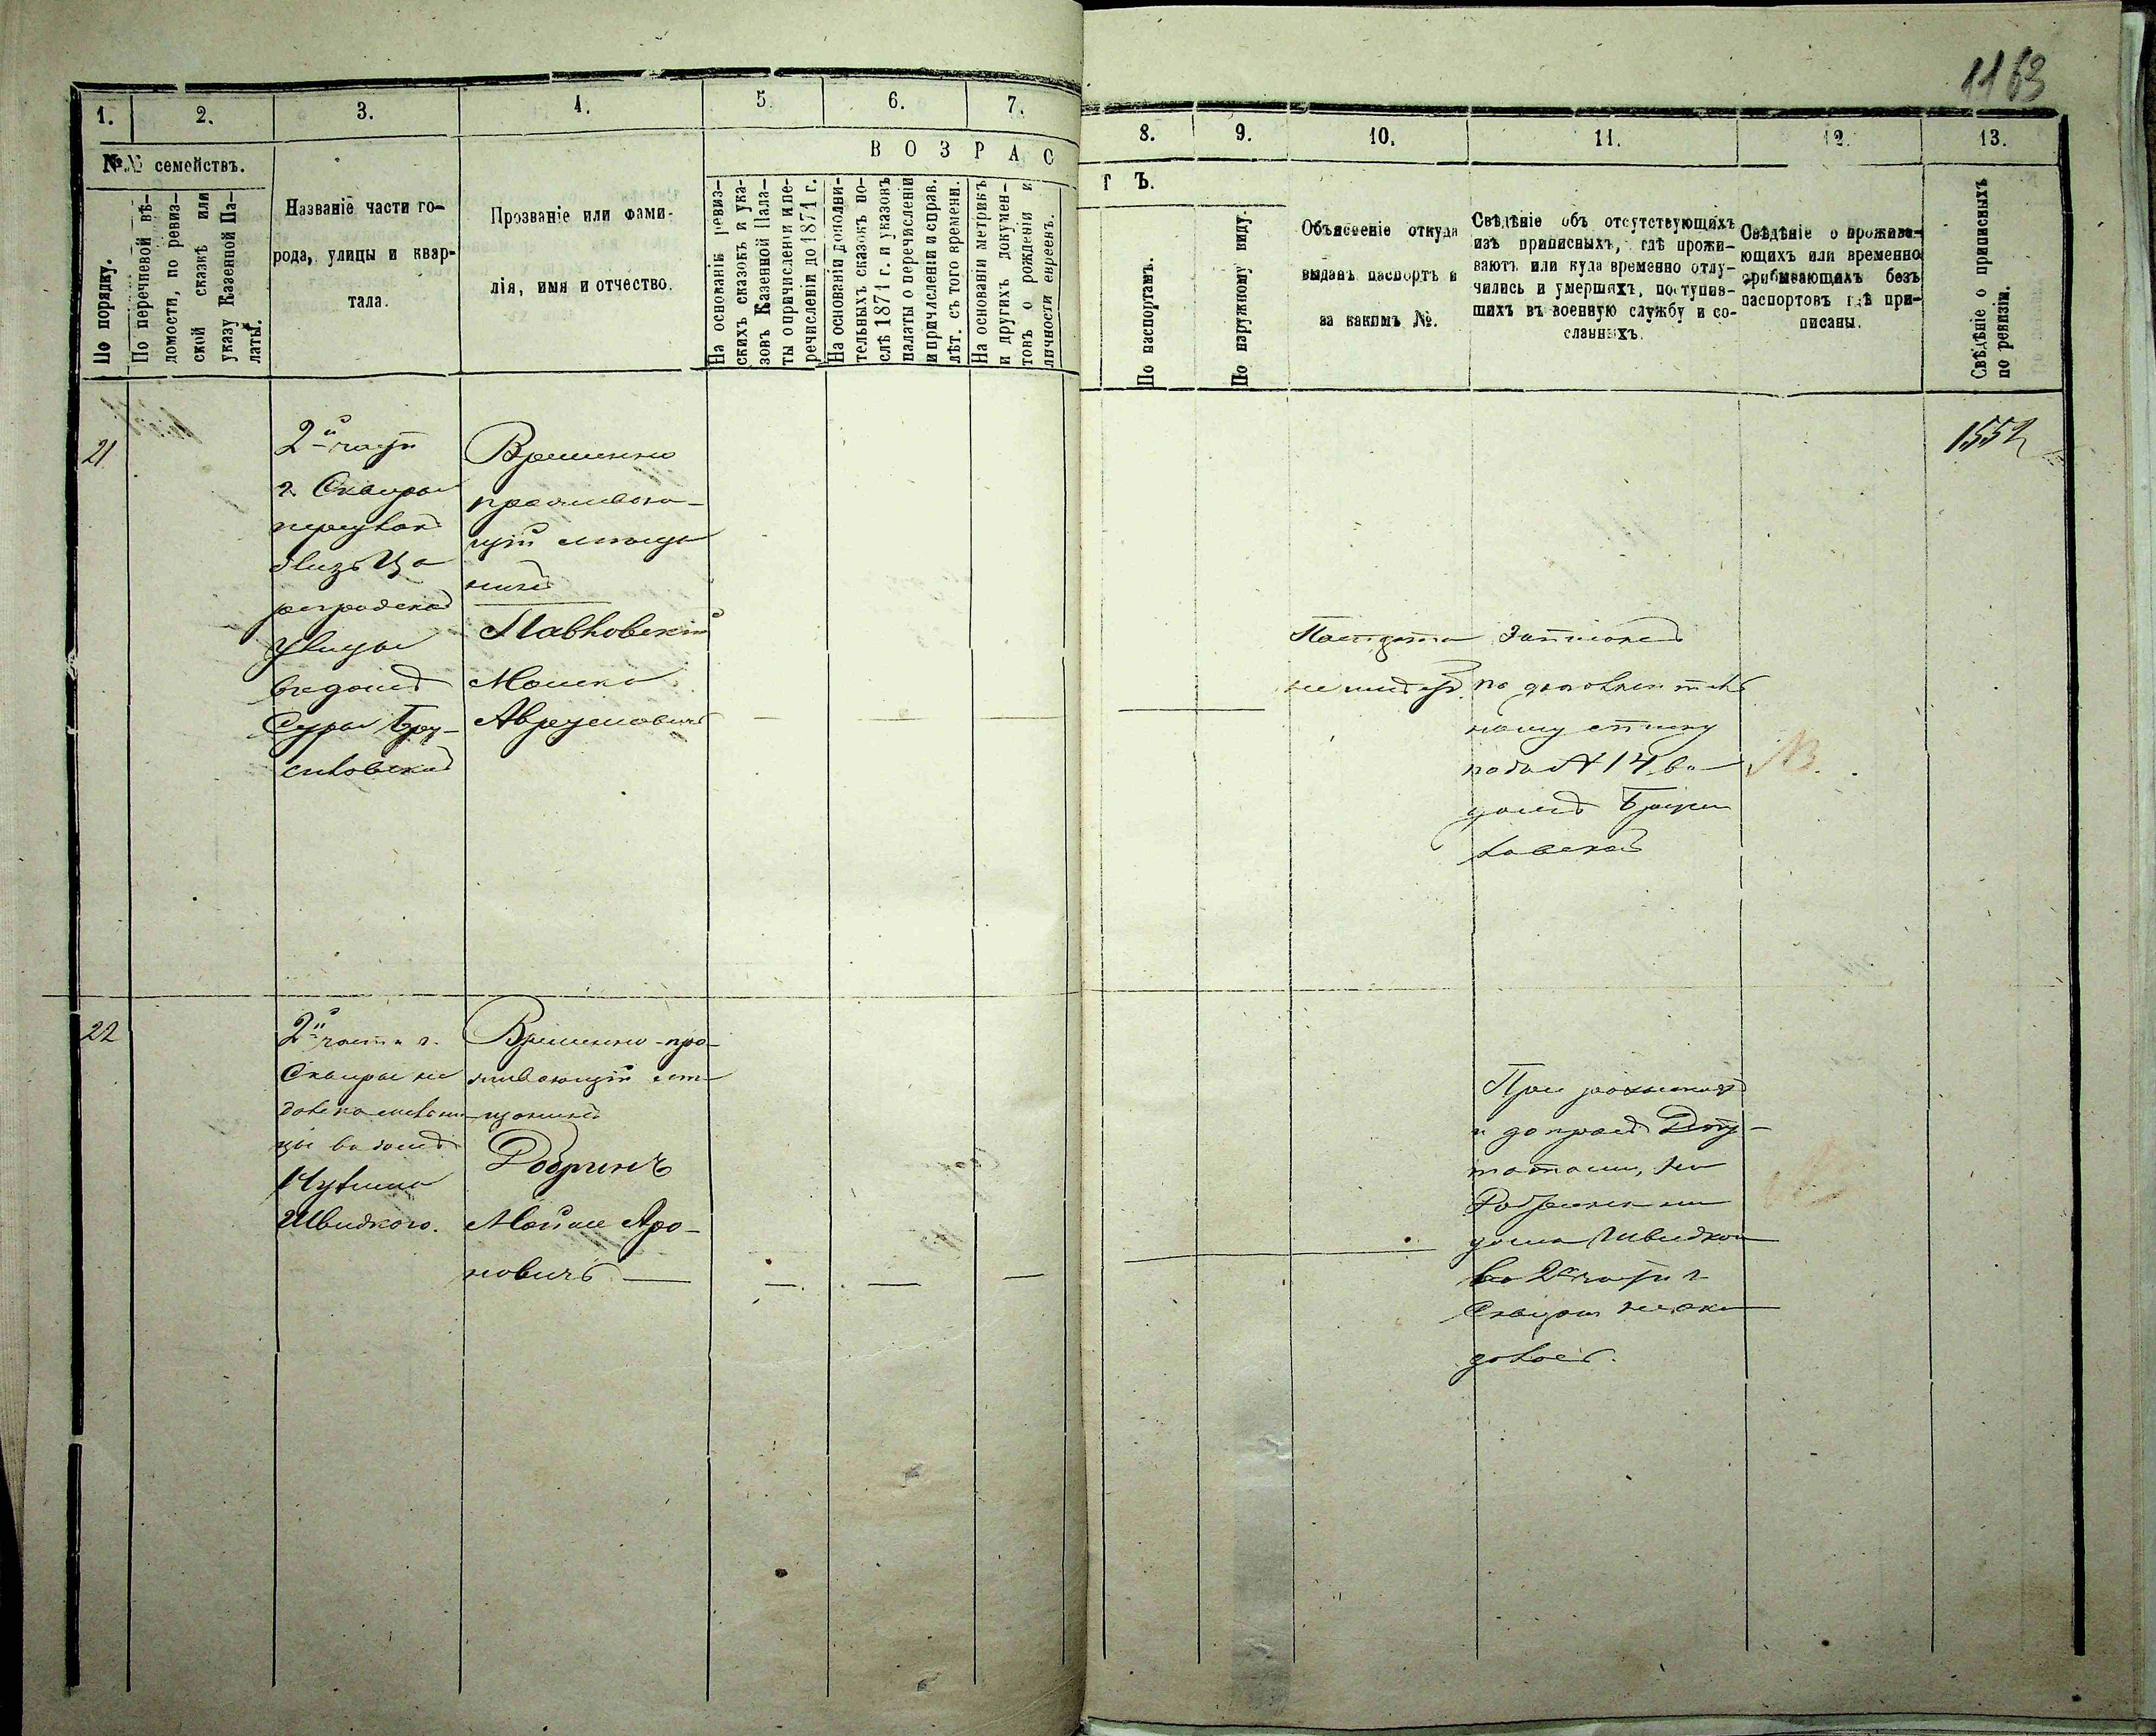 1163
1. 2. 3. 4. 5. 6. 7.
8. 9. 10. 11. 12. 13.
№№ семействъ.
По порядку.
По перечневой вѣ-
домости, по ревиз-
ской сказкѣ или
указу Казенной Па-
латы.
Названіе части го-
рода, улицы и квар-
тала.
Прозваніе или фами-
лія, имя и отчество.
ВОЗРАС
На основаніи ревиз-
скихъ сказокъ и ука-
зовъ Казенной Пала-
ты о причисленіи и пе-
речисленіи до 1871 г.
На основаніи дополни-
тельныхъ сказокъ по-
слѣ 1871 г. и указовъ
палаты о перечисленіи
и причисленіи и справ.
лѣт. съ того времени.
На основаніи метрикъ
и другихъ докумен-
товъ о рожденіи и
личности евреевъ.
ТЪ.
По паспортамъ.
По наружному виду.
Объясненіе откуда
выданъ паспортъ и
за какимъ №.
Свѣдѣніе объ отсутствующихъ
изъ приписныхъ, гдѣ прожи-
ваютъ или куда временно отлу-
чились и умершихъ, поступив-
шихъ въ военную службу и со-
сланныхъ.
Свѣдѣніе о прожива-
ющихъ или временно
прибывающихъ безъ
паспортовъ гдѣ при-
писаны.
Свѣдѣніе о приписныхъ
по ревизіи.
21
2й части
г. Сквиры
переулокъ
близъ Ца
реградской
улицы
въ домѣ
Суры Бру-
силовской
Временно
прожива-
ющій мѣща
нинъ
Павловскій
Мошко
Аврумовичъ
Паспорта
не имѣетъ
Записанъ
по дополнитель
ному списку
подъ № 14 въ
домѣ Бруси
ловской
1552
22
2й части г.
Сквиры на
въ домѣ
Нухима
Швидкого.
Временно-про-
живающій мѣ-
щанинъ
Добринъ
Мойше Аро-
новичъ
При
и
Добринъ
дома Швидкого
во 2й части г
Сквиры не ока
залось.